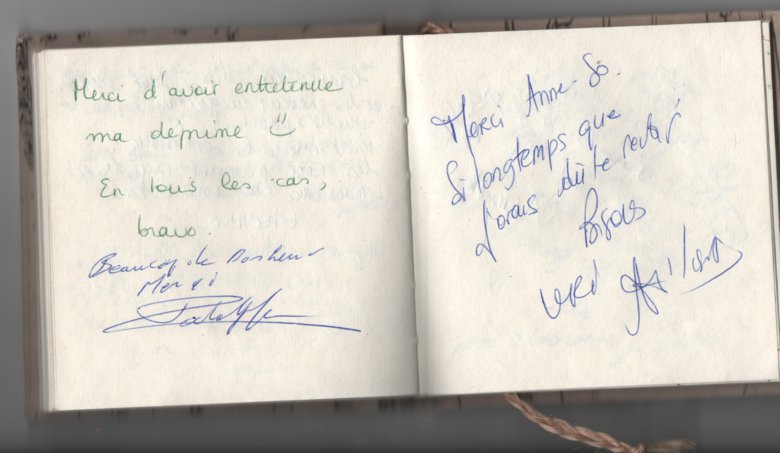 Merci d'avoir entretenue
ma déprime
En tous les cas,
bravo.
Beaucoup de Bonheur
Merci
Merci Anne-So.
Si longtemps que
J'avais dû te
Bisous